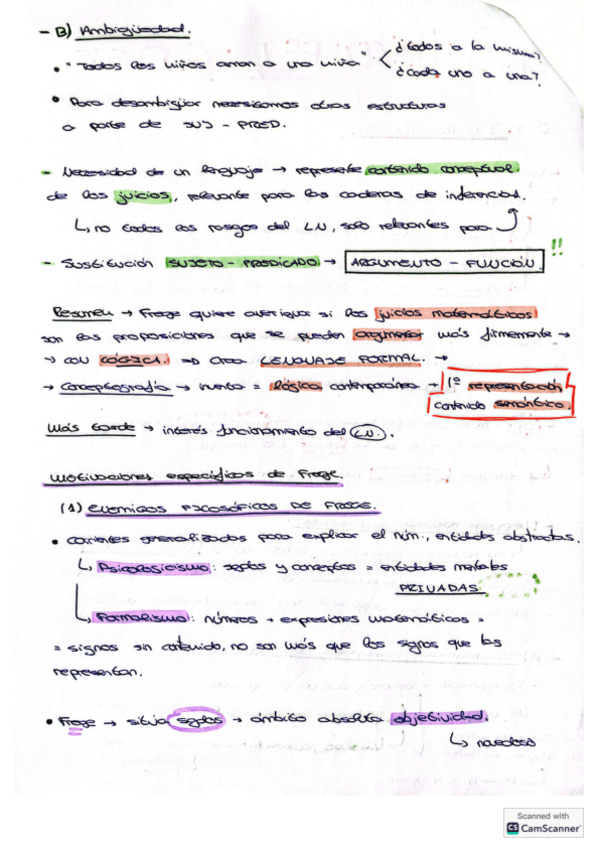 - B) Ambigüedad.
• "Todos los niños aman a una niña" < ¿todos a la misma?
¿Cada uno a una?
• Para desambigüar necesitamos otras estructuras
a parte de SUJ - PRED.
- Necesidad de un lenguaje → represente contenido conceptual
de los juicios, relevante para las cadenas de inferencias.
↳ no todos los rasgos del LN, solo relevantes para
- Sustitución SUJETO - PREDICADO → ARGUMENTO - FUNCIÓN !!
Resumen → Frege quiere averiguar si los juicios matemáticos
son las proposiciones que se pueden argumentar más firmemente →
→ con LÓGICA. ⇒ Crea LENGUAJE FORMAL. →
→ Conceptografía → invento = lógica contemporánea → 1ª representación
contenido semántico.
Más tarde → interés funcionamiento del LN.
Motivaciones específicas de Frege.
(1) ENEMIGOS FILOSÓFICOS DE FREGE.
• corrientes generalizadas para explicar el núm., entidades abstractas.
↳ Psicologicismo: y conceptos = entidades mentales
PRIVADAS
↳ Formalismo: números + expresiones matemáticas =
= signos sin contenido, no son más que los signos que las
representan.
• Frege → situa → ámbito absoluta objetividad.
↳
Scanned with
CS CamScanner